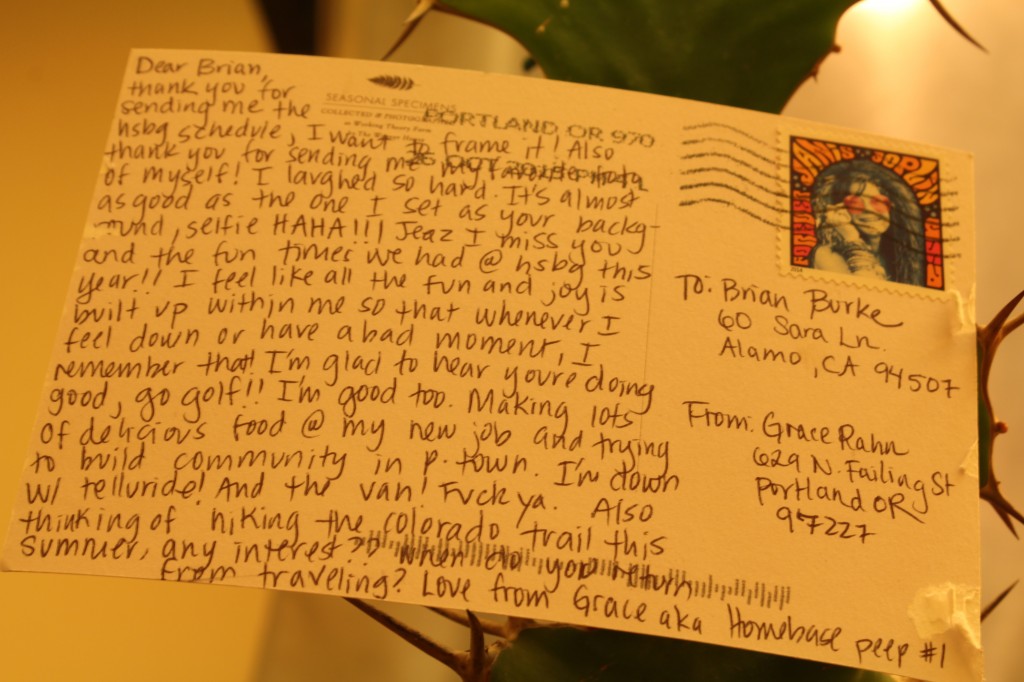 Dear Brian,
thank you for
sending me the
hsbg schedule, I want to frame it! Also
thank you for sending me my favorite
of myself! I laughed so hard. It's almost
as good as the one I set as your backg-
round, selfie HAHA!!! Jeaz I miss you
and the fun times we had @ hsbg this
year!! I feel like all the fun and joy is
built up within me so that whenever I
feel down or have a bad moment, I
remember that! I'm glad to hear youre doing
good, go golf!! I'm good too. Making lots
of delicious food @ my new job and trying
to build community in p-town. I'm down
w/ telluride! And the van! Fuck ya. Also
thinking of hiking the colorado trail this
summer, any interest?? When do you return
from traveling? Love from Grace aka Homebase peep #1
SEASONAL SPECIMENS
COLLECTED & 
PORTLAND OR 970
26 OCT
FOREVER JANIS JOPLIN USA
To: Brian Burke
60 Sara Ln.
Alamo, CA 94507
From: Grace Rahn
629 N. Failing St
Portland OR
97227